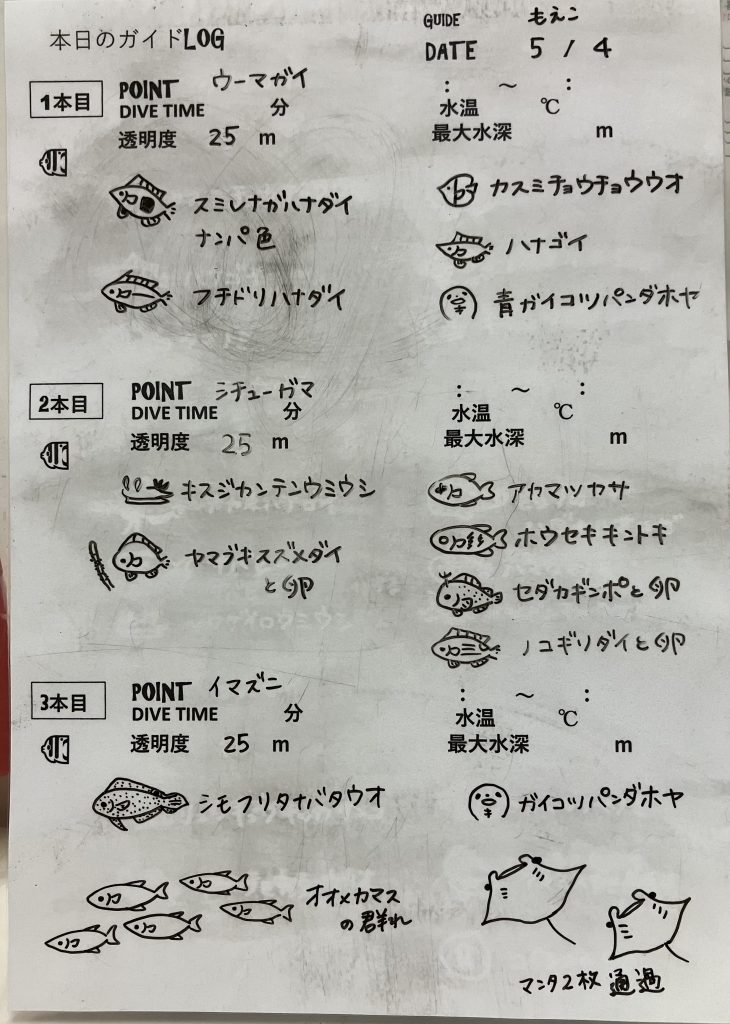 本日のガイドLOG
GUIDE もえこ
DATE 5 / 4
1本目 POINT ウーマガイ : ～ :
DIVE TIME 分 水温 ℃
透明度 25 m 最大水深 m
スミレナガハナダイ カスミチョウチョウウオ
ナンパ色 ハナゴイ
フチドリハナダイ 青ガイコツパンダホヤ
2本目 POINT シチューガマ : ～ :
DIVE TIME 分 水温 ℃
透明度 25 m 最大水深 m
キスジカンテンウミウシ アカマツカサ
ヤマブキスズメダイ ホウセキキントキ
と卵 セダカギンポと卵
ノコギリダイと卵
3本目 POINT イマズニ : ～ :
DIVE TIME 分 水温 ℃
透明度 25 m 最大水深 m
シモフリタナバタウオ ガイコツパンダホヤ
オオメカマス
の群れ
マンタ2枚 通過